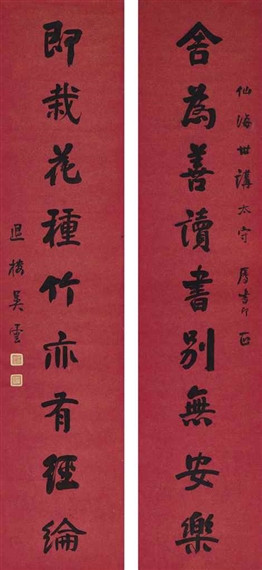 仙海世講太守 屬書即正
舍為善讀書別無安樂
即栽花種竹亦有經綸
退樓吳雲